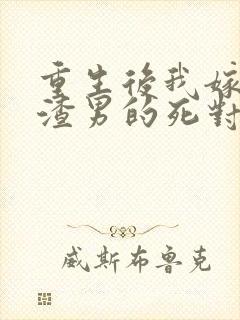 重生後我嫁
渣男的死對
威斯布魯克